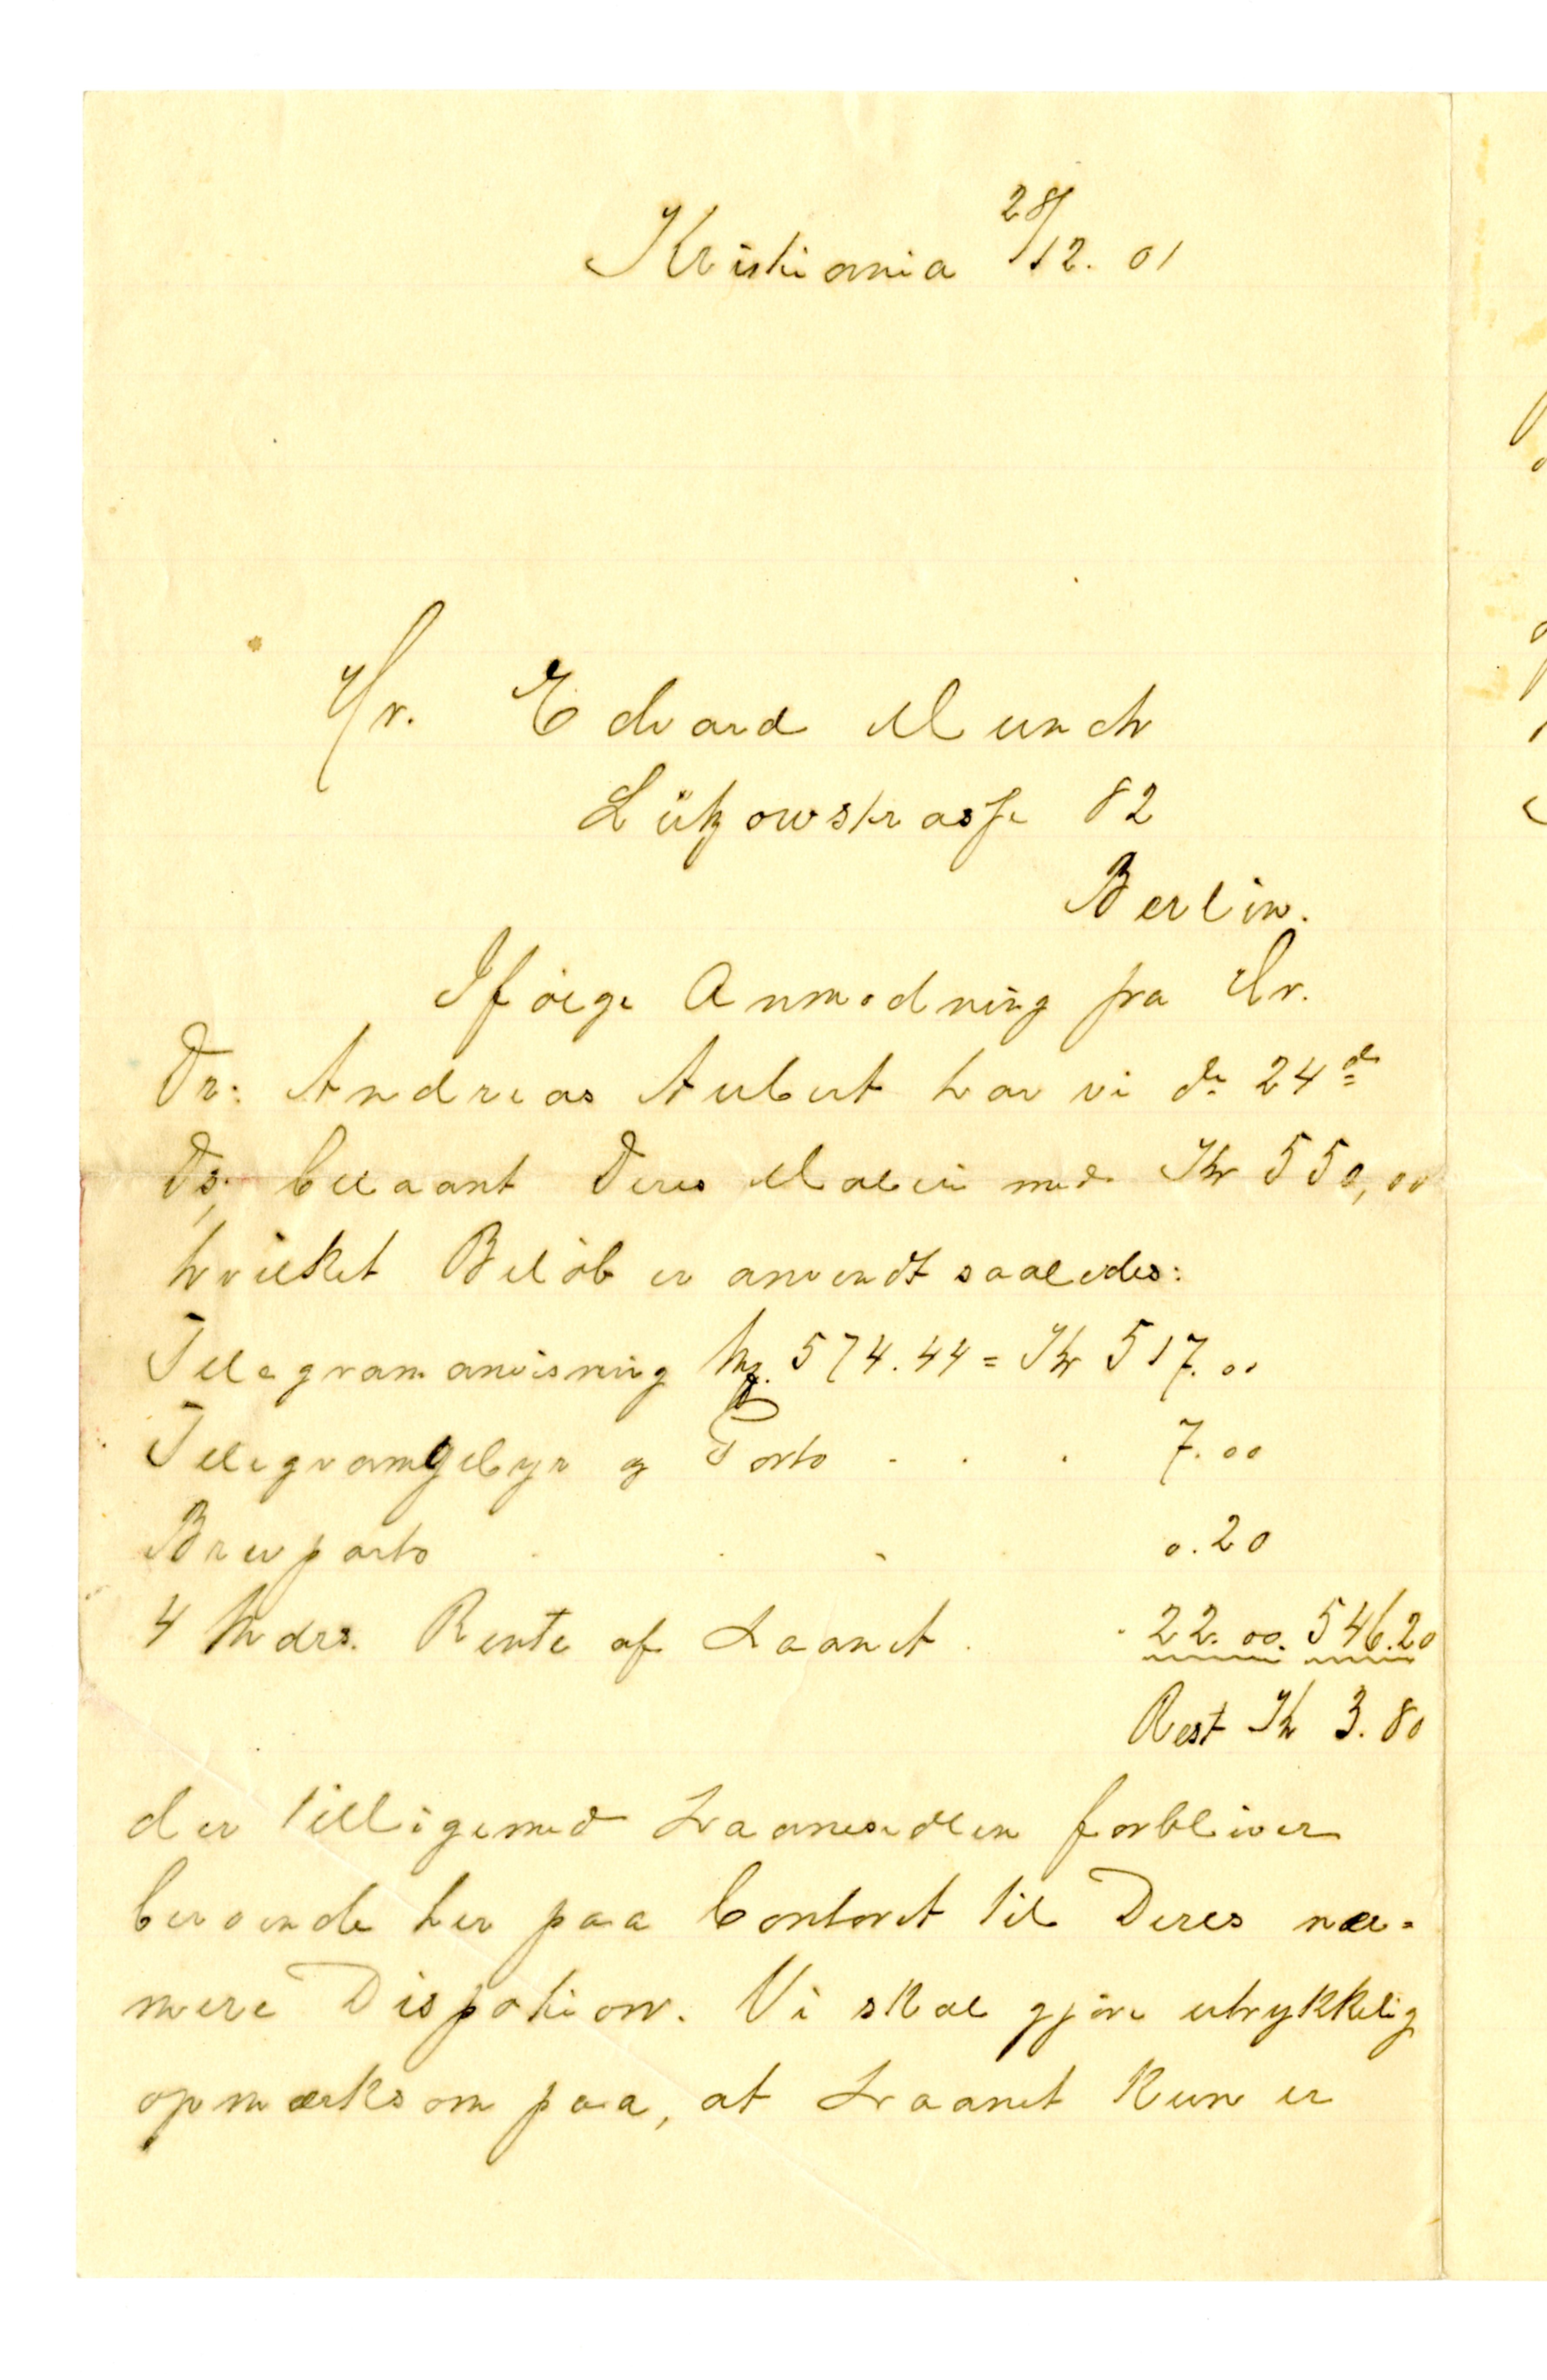 Kristiania 28/12. 01
Hr. Edvard Munch
Lützowstrasse 82
Berlin.
Ifølge Anmodning fra Hr.
Dr: Andreas Aubert har vi d. 24de
Ds. belaant Deres Maleri med Kr 550,00
hvilket Beløb er anvendt saaledes:
Telegramanvisning Mk. 574.44 = Kr 517.00
Telegramgebyr og Porto . . . 7.00
Brevporto . . . . 0.20
4 Mdrs. Rente af Laanet . . 22.00. 546.20
Rest Kr 3.80
der tilligemed Laanesedlen forbliver
beroende her paa Contoret til Deres nær-
mere Dispotion. Vi skal gjøre utrykkelig
opmærksom paa, at Laanet kun er